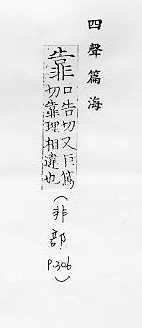 四聲篇海
靠 口告切又巨
切靠理相違也
(非部 P.306)